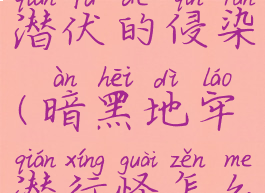 qián fú de qīn rǎn
潜伏的侵染
àn hēi dì láo
(暗黑地牢
qián xíng guài zěn me
潜行怪怎么